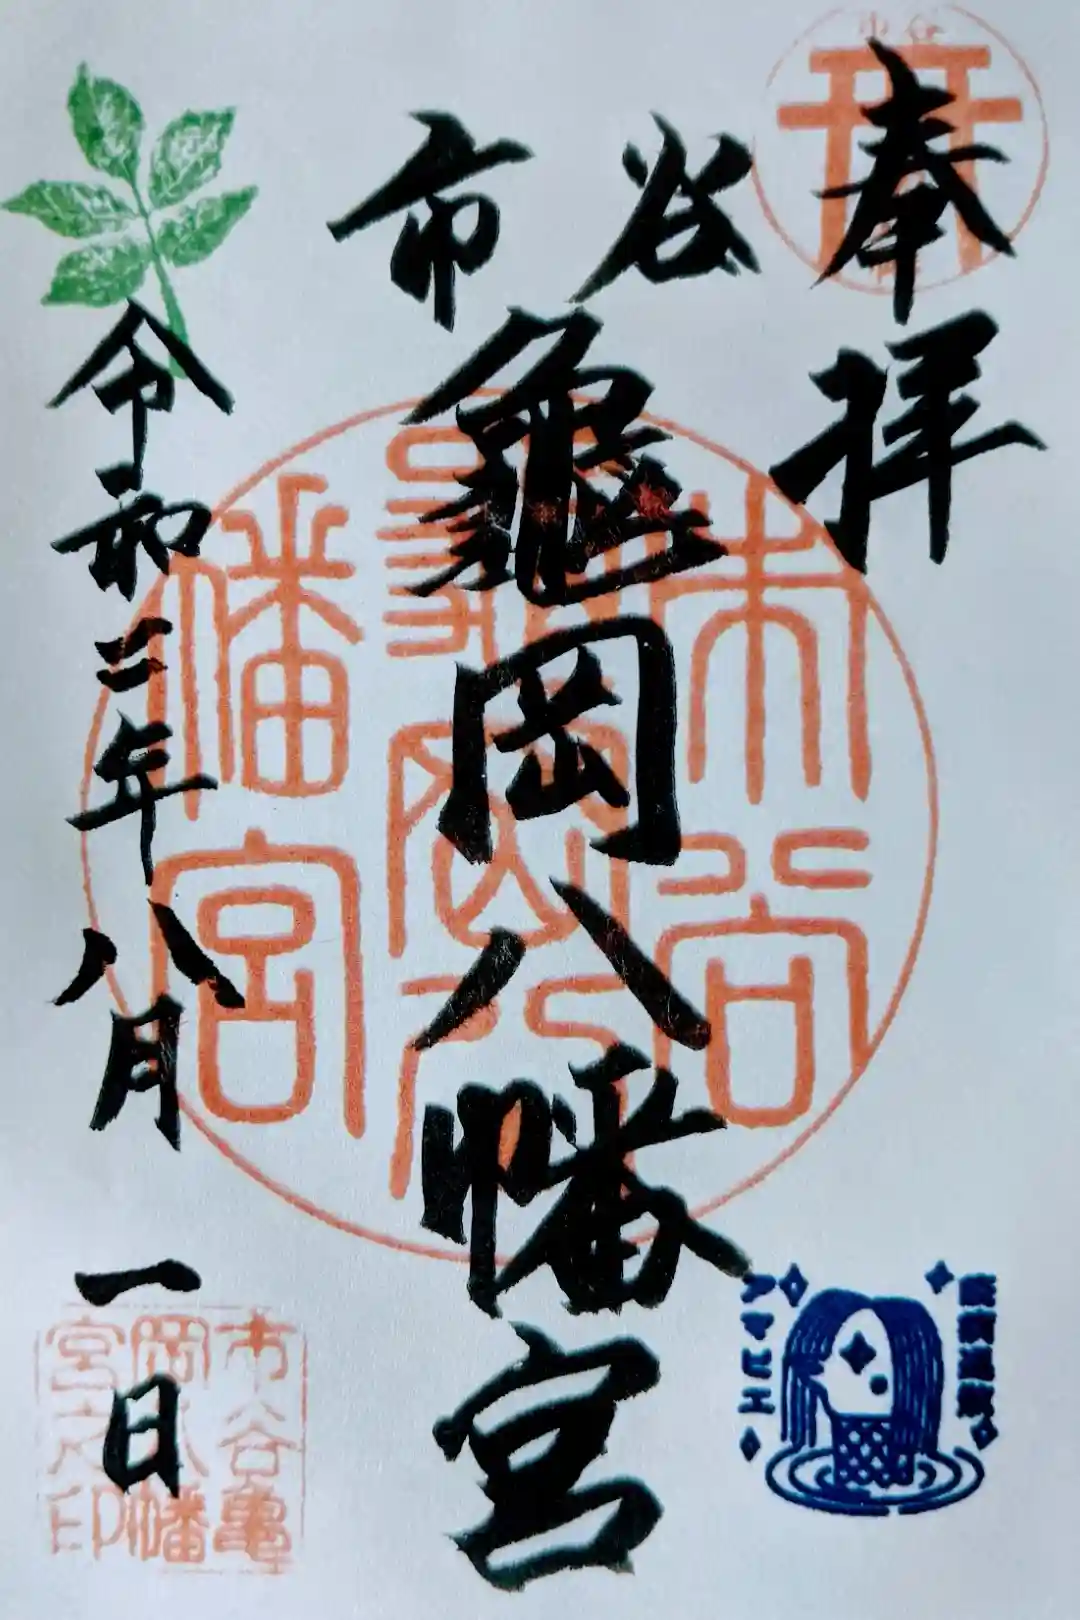 奉拝
市谷
龜岡八幡宮
令和二年八月一日
市谷
龜岡八
幡宮
市谷亀
岡八幡
宮之印
疫病退散
アマビエ